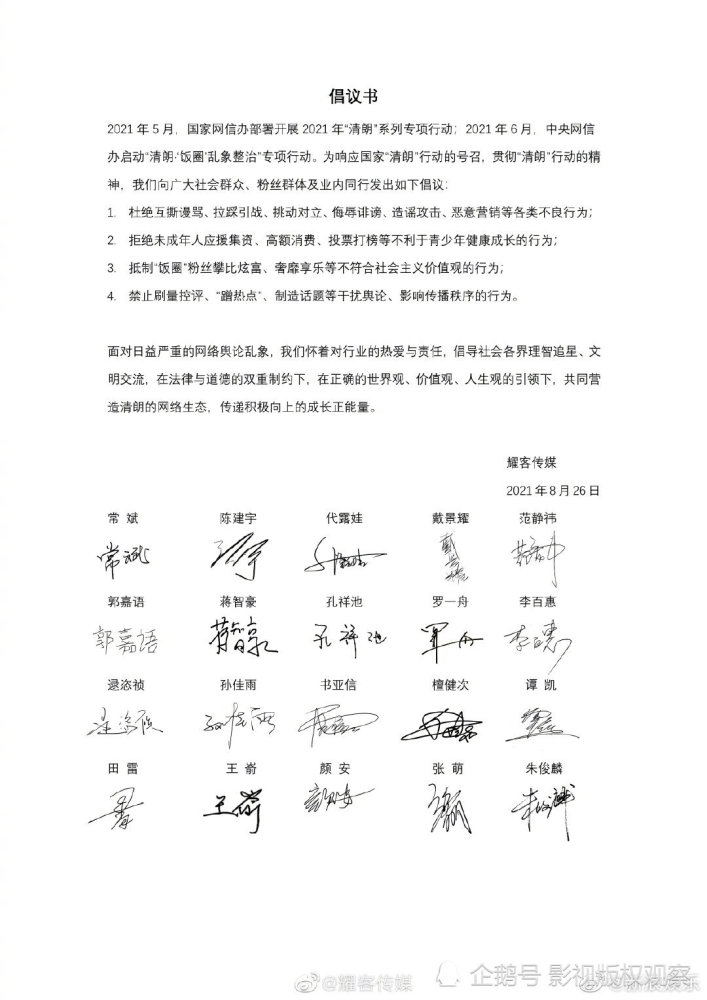 倡议书
2021 年 5 月，国家网信办部署开展 2021 年“清朗”系列专项行动；2021 年 6 月，中央网信
办启动“清朗·‘饭圈’乱象整治”专项行动。为响应国家“清朗”行动的号召，贯彻“清朗”行动的精
神，我们向广大社会群众、粉丝群体及业内同行发出如下倡议：
1. 杜绝互撕谩骂、拉踩引战、挑动对立、侮辱诽谤、造谣攻击、恶意营销等各类不良行为；
2. 拒绝未成年人应援集资、高额消费、投票打榜等不利于青少年健康成长的行为；
3. 抵制“饭圈”粉丝攀比炫富、奢靡享乐等不符合社会主义价值观的行为；
4. 禁止刷量控评、“蹭热点”、制造话题等干扰舆论、影响传播秩序的行为。
面对日益严重的网络舆论乱象，我们怀着对行业的热爱与责任，倡导社会各界理智追星、文
明交流，在法律与道德的双重制约下，在正确的世界观、价值观、人生观的引领下，共同营
造清朗的网络生态，传递积极向上的成长正能量。
耀客传媒
2021 年 8 月 26 日
常 斌 陈建宇 代露娃 戴景耀 范静祎
常斌
郭嘉语 蒋智豪 孔祥池 罗一舟 李百惠
郭嘉语 蒋智豪 孔祥池 李百惠
逯恣祯 孙佳雨 书亚信 檀健次 谭 凯
逯恣祯 孙佳雨
田 雷 王 嵛 颜 安 张 萌 朱俊麟
王嵛 颜安 朱俊麟
@耀客传媒
企鹅号 影视版权观察
@新浪娱乐